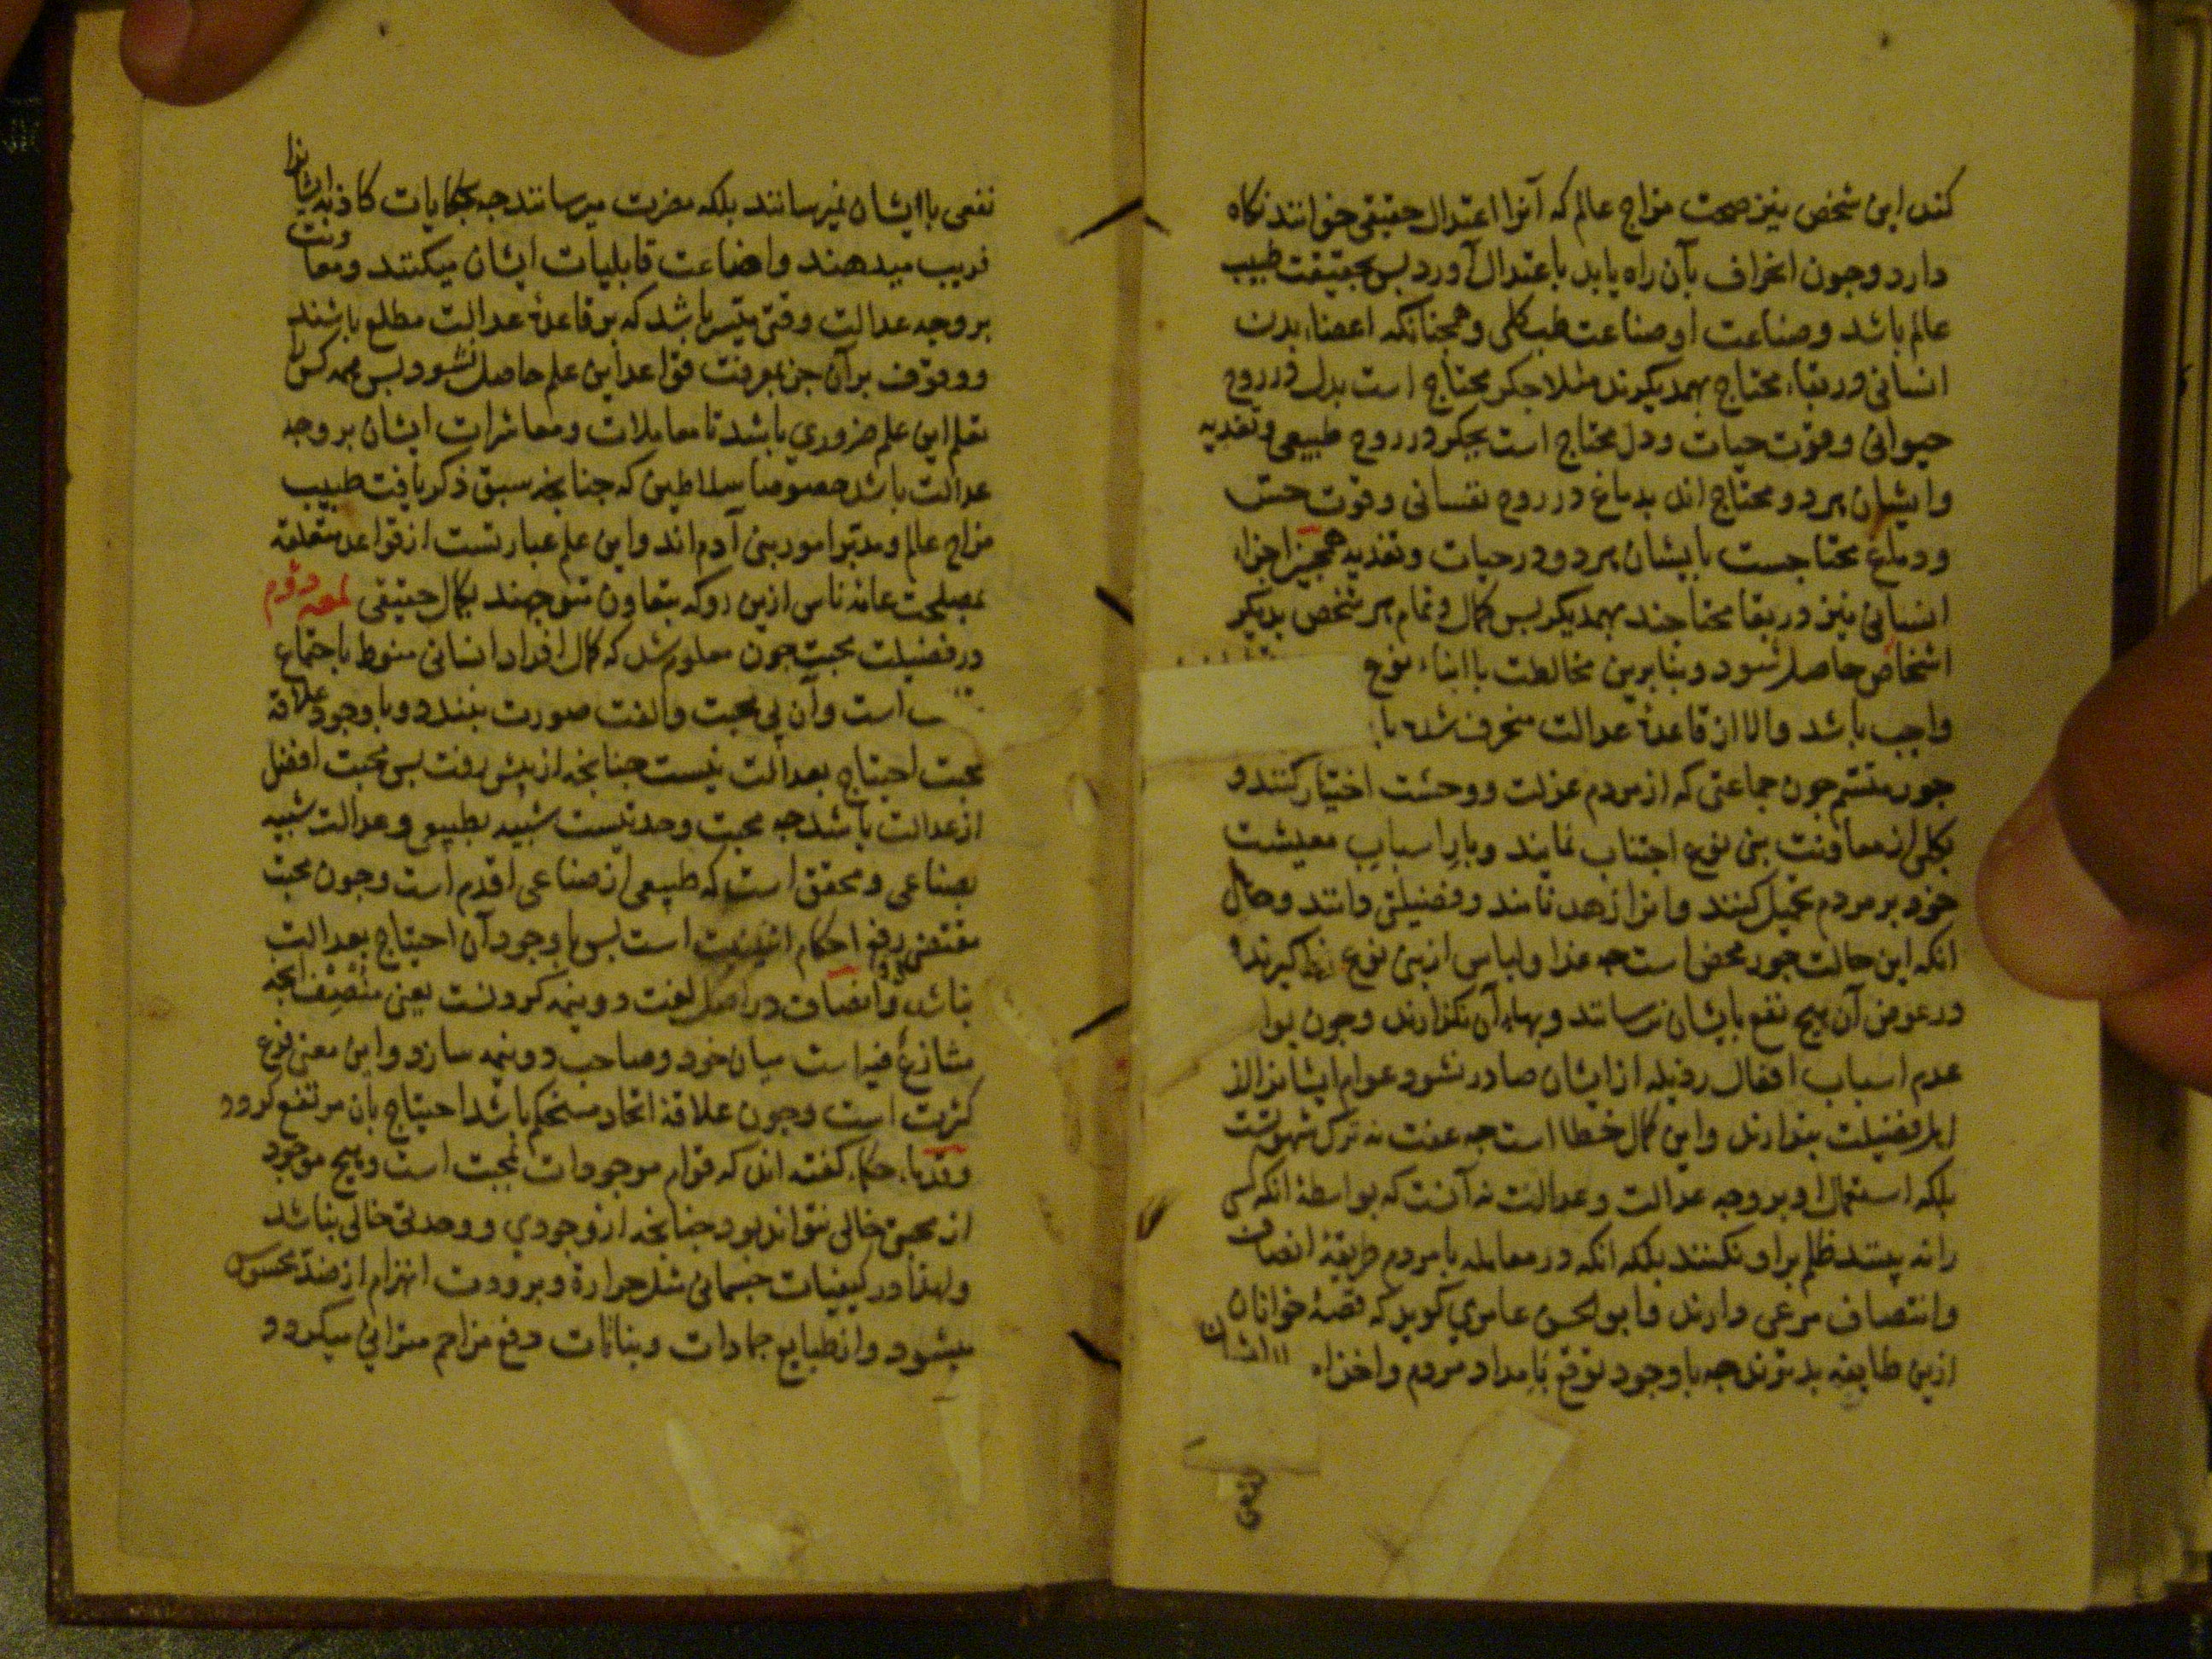 کند این شخص نیز صحت مزاج عالم که آنرا اعتدال حقیقی خوانند نکاه
دارد وجون انحراف بآن راه یابد باعتدال آورد بس بحقیقت طبیب
عالم باشد وصناعت او صناعت طب کلی وهمجنانکه اعضاء بدن
انسانی در بقاء محتاج بهمدیکرند مثلا جکر محتاج است بدل در روح
حیوانی وقوت حیات ودل محتاج است بجکر در روح طبیعی وتغدیه
وایشان هر دو محتاج اند بدماغ در روح نفسانی وقوت حس
ودماغ محتاجست بایشان هر دو در حیات وتغدیه همجنین اجزاء
انسانی نیز در بقا محتاجند بهمدیکر بس کمال وتمام هر شخص بدیکر
اشخاص حاصل شود وبنابرین مخالطت با ابناء نوع
واجب باشد والا از قاعدهٔ عدالت منحرف شده با
جور متسم جون جماعتی که از مردم عزلت ووحشت اختیار کنند و
بکلی از معاونت بنی نوع اجتناب نمایند وبار اسباب معیشت
خود بر مردم تحمیل کنند وانرا زهد نامند وفضیلتی دانند وحال
انکه این حالت جور محض است جه غذا ولباس از بنی نوع کیرند و
در عوض آن هیج نفع بایشان نرسانند وبهاء آن نکزارند وجون بوا
عدم اسباب افعال رذیله از ایشان صادر نشود عوام ایشانرا از
اهل فضیلت بندارند واین کمال خطا است جه عفت نه ترک شهوتست
بلکه استعمال او بر وجه عدالت وعدالت نه آنست که بواسطهٔ انکه کسی
را نه بینند ظلم بر او نکنند بلکه انکه در معامله با مردم طریقهٔ انصاف
وانتصاف مرعی دارند وابو الحسن عامری کوید که قصه خوانان
ازین طایفه بدترند جه با وجود توقع بامداد مردم واخذ
نفعی
نفعی با ایشان نمیرسانند بلکه مضرت میرسانند جه بحکایات کاذبه ایشانرا
فریب میدهند واضاعت قابلیات ایشان میکنند ومعاونت
بر وجه عدالت وقتی میسر باشد که بر قاعدهٔ عدالت مطلع باشند
ووقوف بر آن جز بمعرفت قواعد این علم حاصل نشود بس همه کس را
تعلم این علم ضروری باشد تا معاملات ومعاشرات ایشان بر وجه
عدالت باشد خصوصا سلاطین که جنانجه سبق ذکر یافت طبیب
مزاج عالم ومدبر امور بنی آدم اند واین علم عبارتست از قواعد متعلقه
بمصلحت عامه ناس ازین رو که بتعاون متوجهند بکمال حقیقی لمعه دوم
در فضیلت محبت جون معلوم شد که کمال افراد انسانی منوط باجتماع
است وآن بی محبت والفت صورت نبندد وبا وجود علاقه
محبت احتیاج بعدالت نیست جنانجه از بیش رفت بس محبت افضل
از عدالت باشد جه محبت وحدتیست شبیه بطبیعی وعدالت شبیه
بصناعی ومحقق است که طبیعی از صناعی اقدم است وجون محبت
مقتضی رفع احکام اثنینیت است بس با وجود آن احتیاج بعدالت
نباشد وانصاف در اصل لغت دو نیمه کردنست یعنی منصف آنجه
متنازع فیه است میان خود وصاحب دو نیمه سازد واین معنی فرع
کثرت است وجون علاقهٔ اتحاد مستحکم باشد احتیاج بآن مرتفع کردد
وقدماء حکماء کفته اند که قوام موجودات بمحبت است وهیج موجود
از محبتی خالی نتواند بود جنانجه از وجودی ووحدتی خالی نباشد
ولهذا در کیفیات جسمانی مثل حرارة وبرودت انهزام از ضد محسوس
میشود واز طبایع جمادات ونباتات دفع مزاحم مترائی میکردد